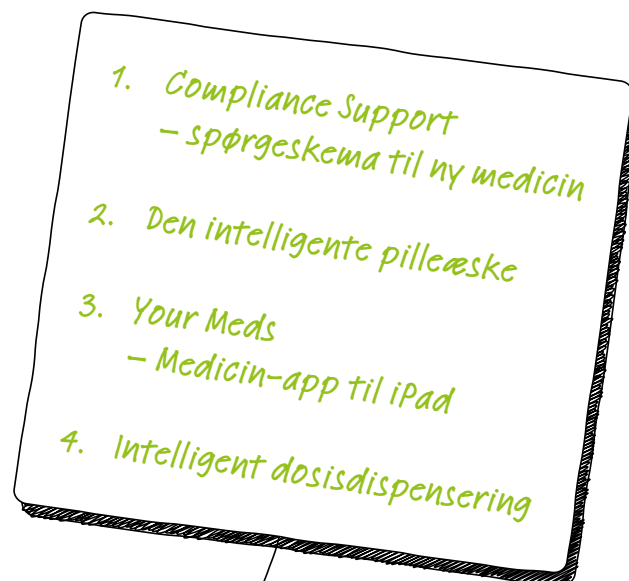 1. Compliance Support
– spørgeskema til ny medicin
2. Den intelligente pilleæske
3. Your Meds
– Medicin-app til iPad
4. Intelligent dosisdispensering